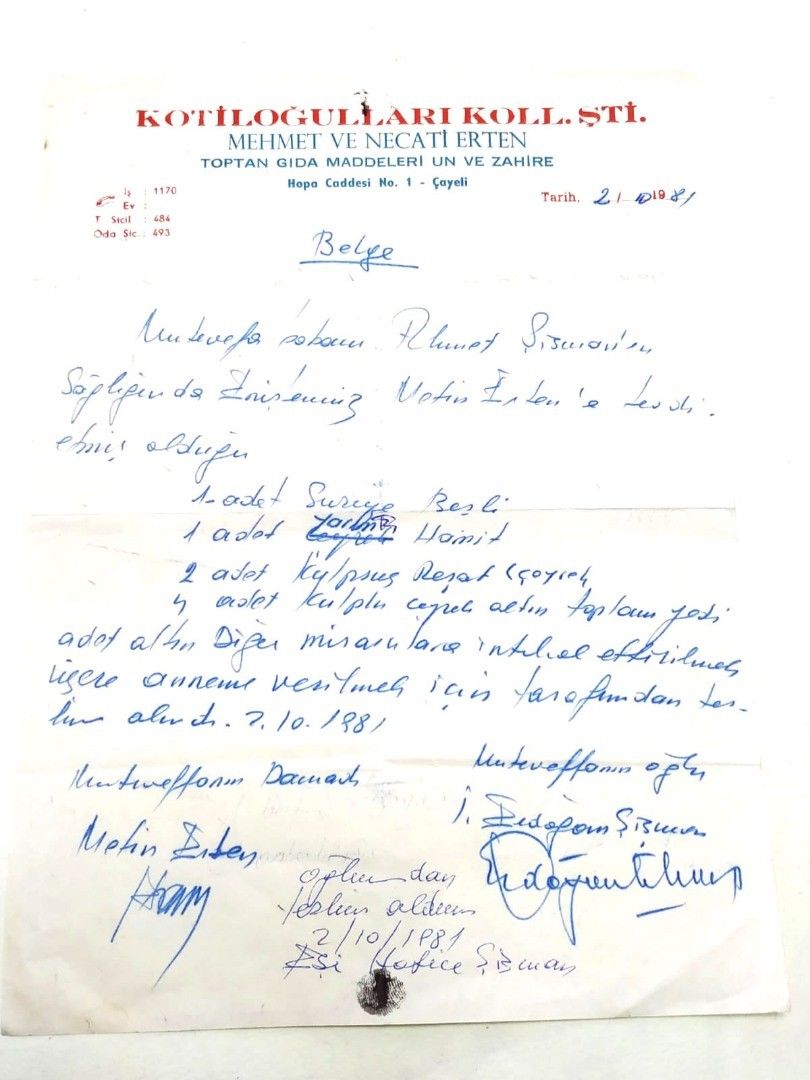 KOTİLOĞULLARI KOLL. ŞTİ.
MEHMET VE NECATİ ERTEN
TOPTAN GIDA MADDELERİ UN VE ZAHİRE
Hopa Caddesi No. 1 - Çayeli
İş : 1170
Ev :
T Sicil : 484
Oda Sic. : 493
Tarih, 2/10 1981
Belge
Muteveffa babam Ahmet Şişman'ın
Sağlığında Eniştemiz Metin Erten'e tevdi
etmiş olduğu
1 adet Suriye Beşli
1 adet yarım Hamit
2 adet Kulpsuz Reşat (çeyrek
4 adet Kulplu çeyrek altın toplam yedi
adet altın Diğer mirascılara intikal ettirilmek
üzere anneme verilmek için tarafımdan tes-
lim alındı. 2.10.1981
Muteveffanın Damadı
Muteveffanın oğlu
İ. Erdoğan Şişman
Metin Erten
oğlumdan
teslim aldım
2/10/1981
Eşi Hatice Şişman